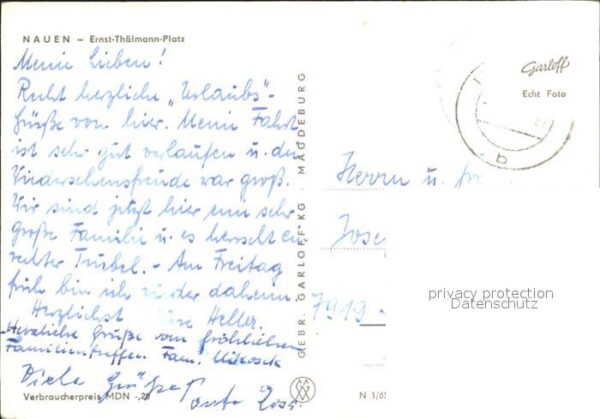 NAUEN – Ernst-Thälmann-Platz
Meine Lieben!
Recht herzliche „Urlaubs"-
grüße von hier. Meine Fahrt
ist sehr gut verlaufen u. die
Wiedersehensfreude war groß.
Wir sind jetzt hier eine sehr
große Familie u. es herrscht ein
rechter Trubel. - Am Freitag
früh bin ich wieder daheim.
Herzlichst Heller.
Herzliche Grüße vom fröhlichen
Familientreffen. Fam.
Viele Grüße
Verbraucherpreis MDN -,20
GEBR. GARLOFF KG · MAGDEBURG
Garloff
Echt Foto
b
Herrn u.
Josef
7919 -
privacy protection
Datenschutz
N 1/65